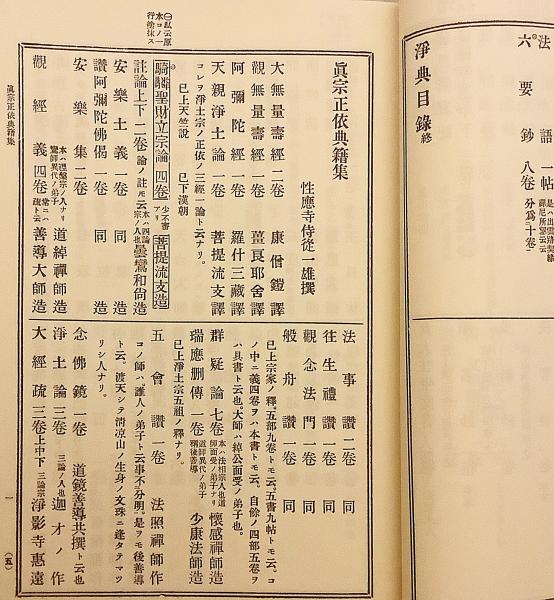 法語一帖
六要鈔八卷 分爲二十卷
淨典目錄終
眞宗正依典籍集
性應寺侍從一雄撰
大無量壽經二卷 康僧鎧譯
觀無量壽經一卷 畺良耶舍譯
阿彌陀經一卷 羅什三藏譯
天親淨土論一卷 菩提流支譯
コレヲ淨土宗ノ正依ノ三經一論ト云ナリ。
已上天竺說 已下漢朝
騎驎聖財立宗論四卷 少不審アリ 菩提流支造
註論上下二卷 論ノ註モ云 本ハ四論宗ノ人也 曇鸞和尙造
安樂土義一卷 同造
讚阿彌陀佛偈一卷 同造
安樂集二卷 本ハ涅槃宗ノ人ナリ鸞師異代ノ弟子 道綽禪師造
觀經義四卷 常ニハ疏ト云 善導大師造
法事讚二卷 同
往生禮讚一卷 同
觀念法門一卷 同
般舟讚一卷 同
已上宗家ノ釋、五部九卷トモ云、五書九帖トモ云。コ
ノ中ニ義四卷ヲハ本書トモ云、自餘ノ四部五卷ヲ
ハ具書ト云也。大師ハ綽公面受ノ弟子也。
群疑論七卷 本ハ法相宗人也道師面受ノ弟子ナリ 懷感禪師造
瑞應刪傳一卷 道師異代ノ弟子稱後善導 少康法師造
已上淨土宗五祖ノ釋ナリ。
五會讚一卷 法照禪師作
コノ師ハ誰人ノ弟子ト云事不分明。是ヲモ後善導
ト云、渡天シテ淸凉山ノ生身ノ文珠ニ逢タテマツ
リシ人ナリ。
念佛鏡一卷 道鏡善導共撰ト云也
淨土論三卷 三論ノ人也 迦才ノ作
大經疏三卷上中下 三論宗 淨影寺惠遠
㊀私云原本コノ一行塗抹ス
眞宗正依典籍集
一
(五)